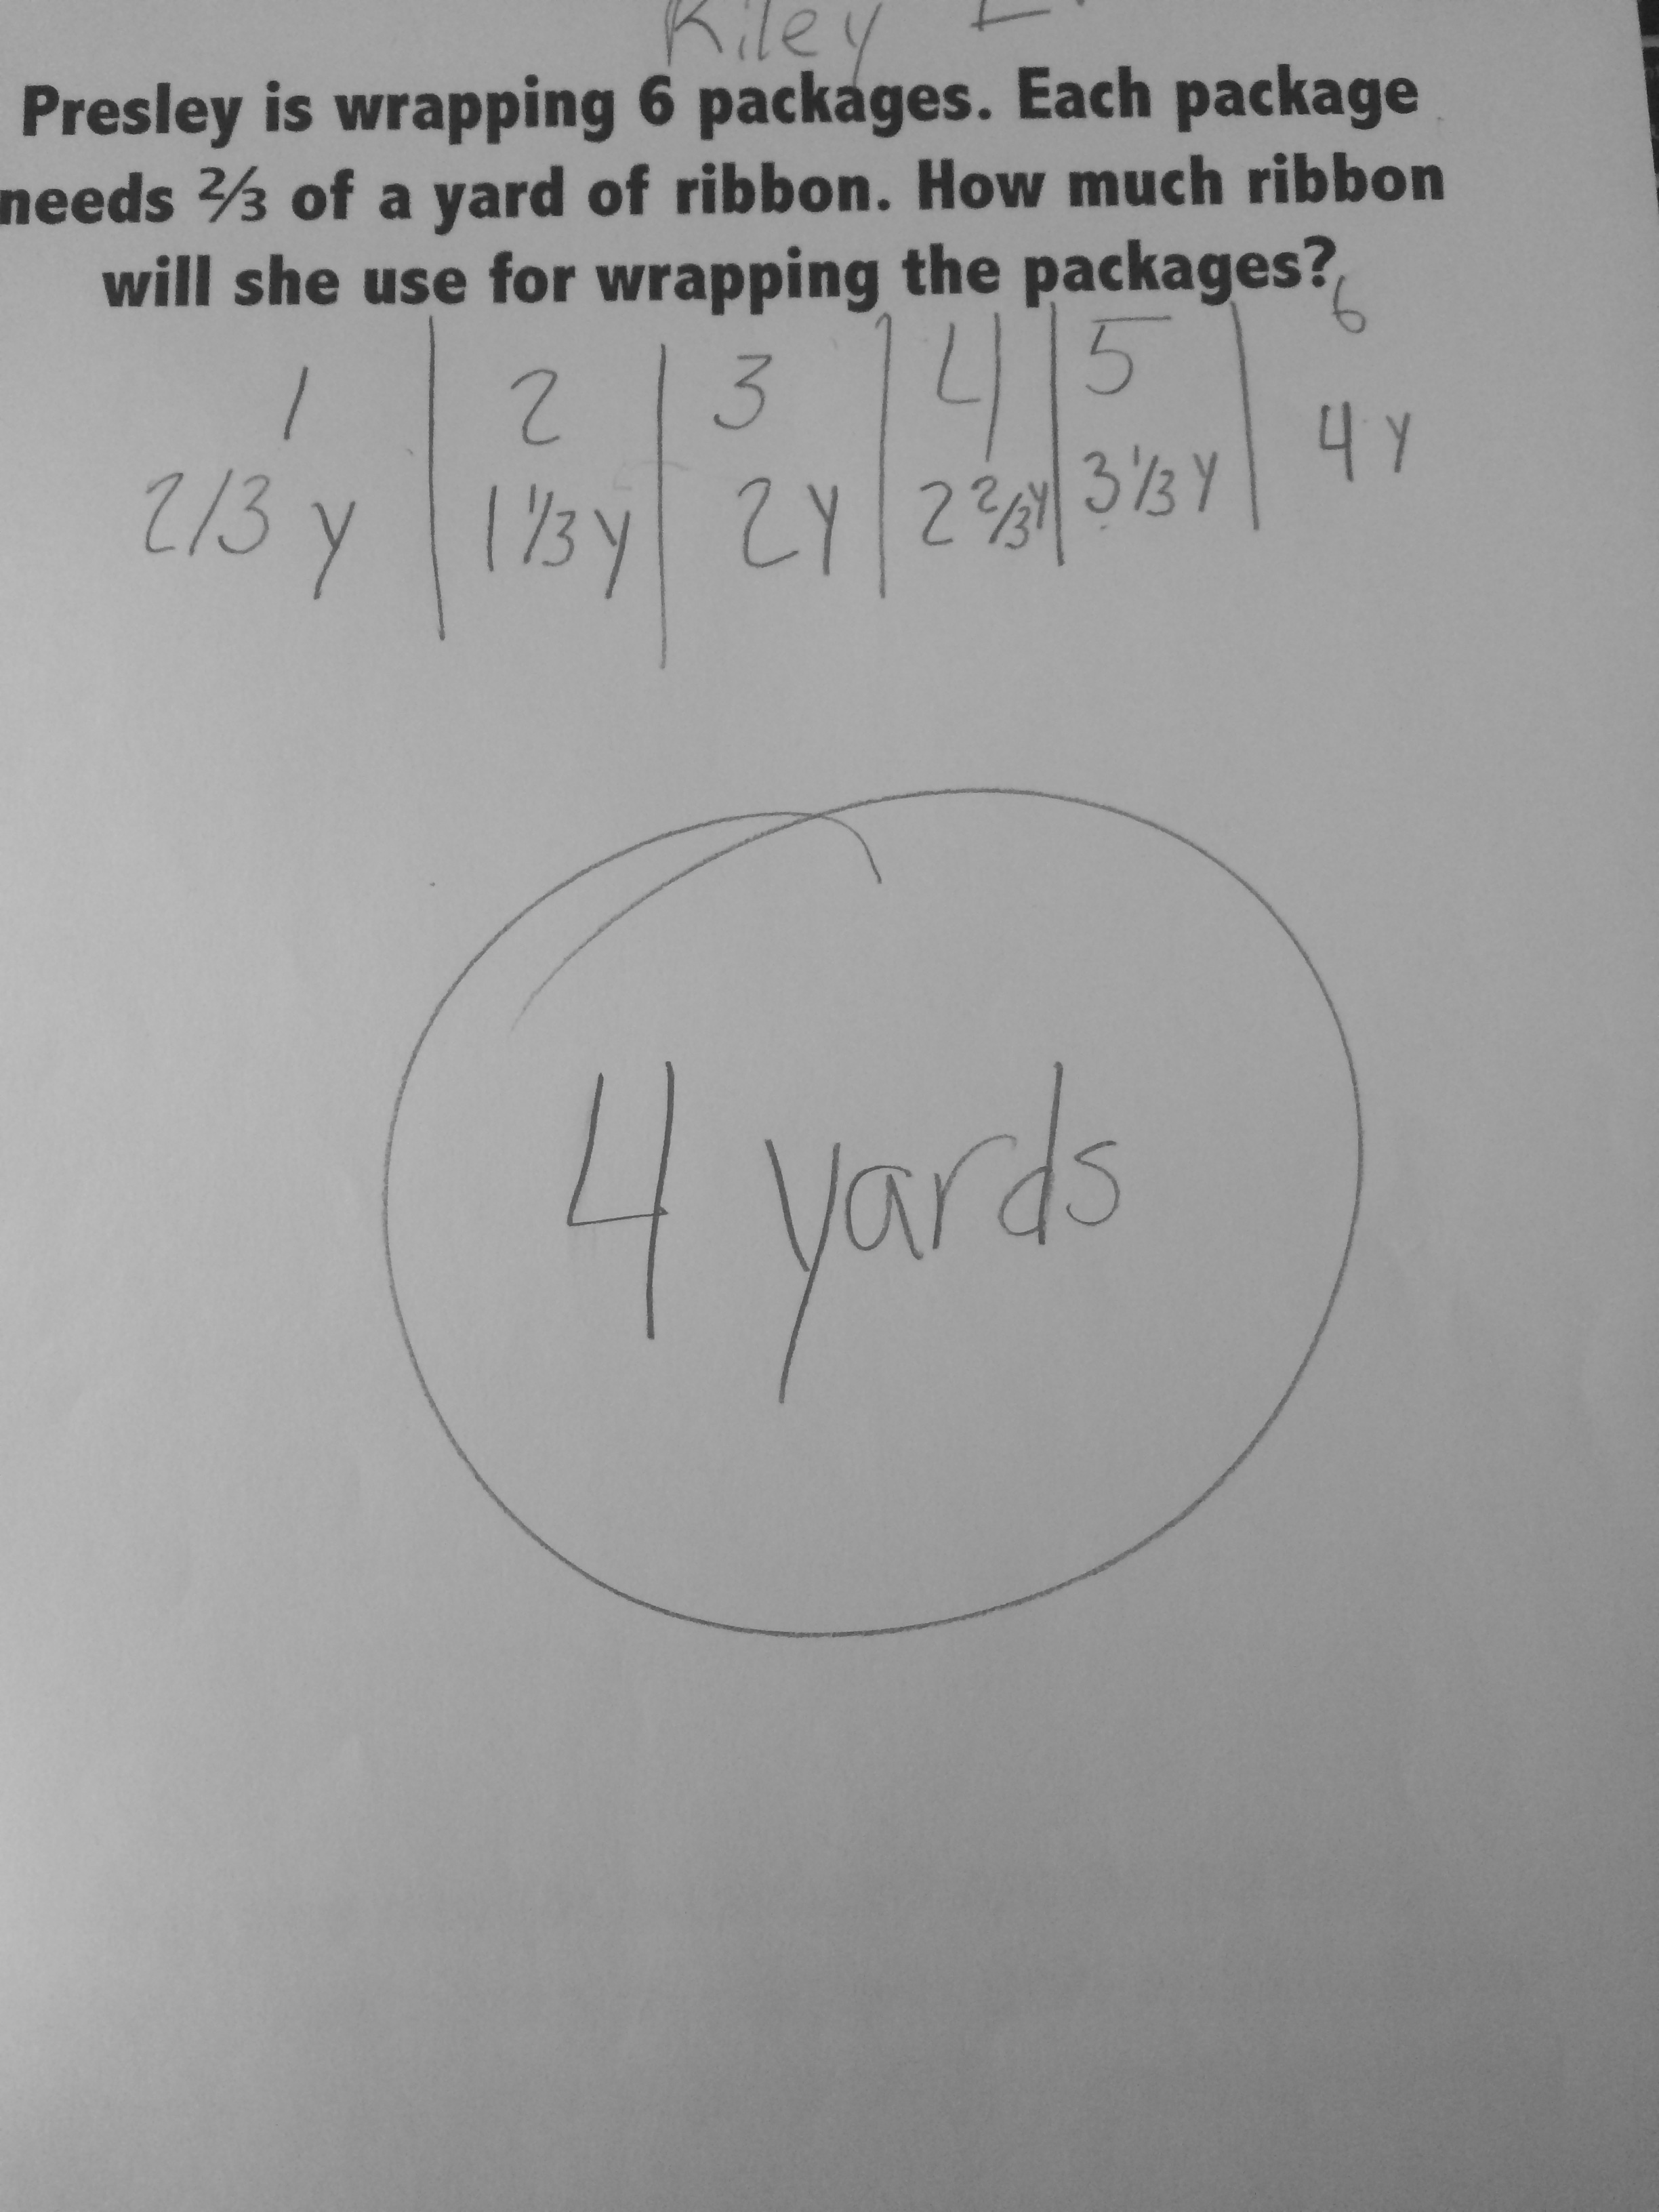 Kiley
Presley is wrapping 6 packages. Each package
needs ⅔ of a yard of ribbon. How much ribbon
will she use for wrapping the packages?
1 2 3 4 5 6
2/3 y 1 1/3 y 2y 2 2/3 y 3 1/3 y 4 y
4 yards